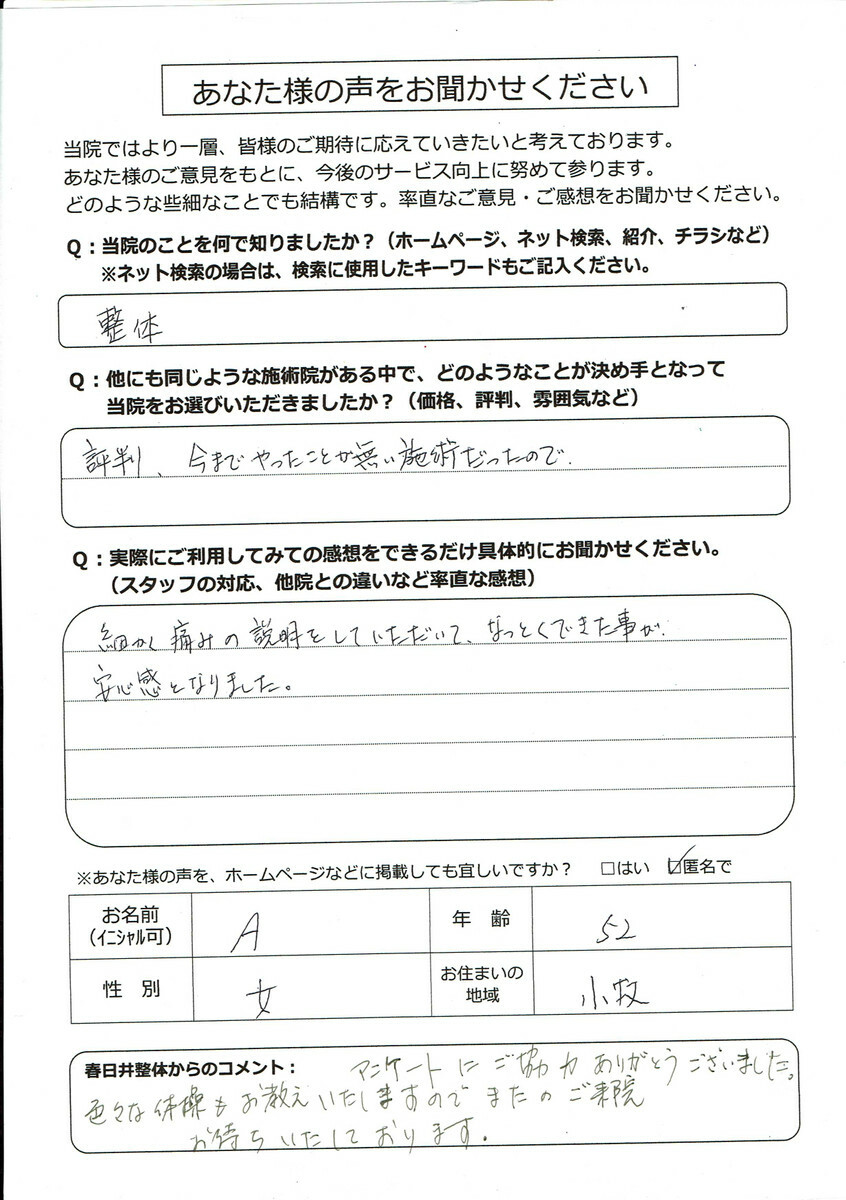 あなた様の声をお聞かせください
当院ではより一層、皆様のご期待に応えていきたいと考えております。
あなた様のご意見をもとに、今後のサービス向上に努めて参ります。
どのような些細なことでも結構です。率直なご意見・ご感想をお聞かせください。
Q：当院のことを何で知りましたか？（ホームページ、ネット検索、紹介、チラシなど）
※ネット検索の場合は、検索に使用したキーワードもご記入ください。
整体
Q：他にも同じような施術院がある中で、どのようなことが決め手となって
当院をお選びいただきましたか？（価格、評判、雰囲気など）
評判、今までやったことが無い施術だったので.
Q：実際にご利用してみての感想をできるだけ具体的にお聞かせください。
（スタッフの対応、他院との違いなど率直な感想）
細かく痛みの説明をしていただいて、なっとくできた事が.
安心感となりました。
※あなた様の声を、ホームページなどに掲載しても宜しいですか？ □はい ☑匿名で
お名前 A 年 齢 52
（ｲﾆｼｬﾙ可）
性 別 女 お住まいの 小牧
地域
春日井整体からのコメント： アンケートにご協力ありがとうございました。
色々な体操もお教えいたしますのでまたのご来院
お待ちいたしております.